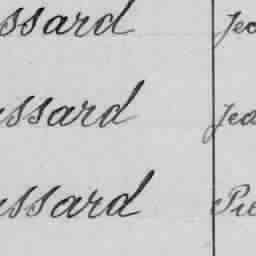 ssard Jea
ussard Jea
ussard Pie